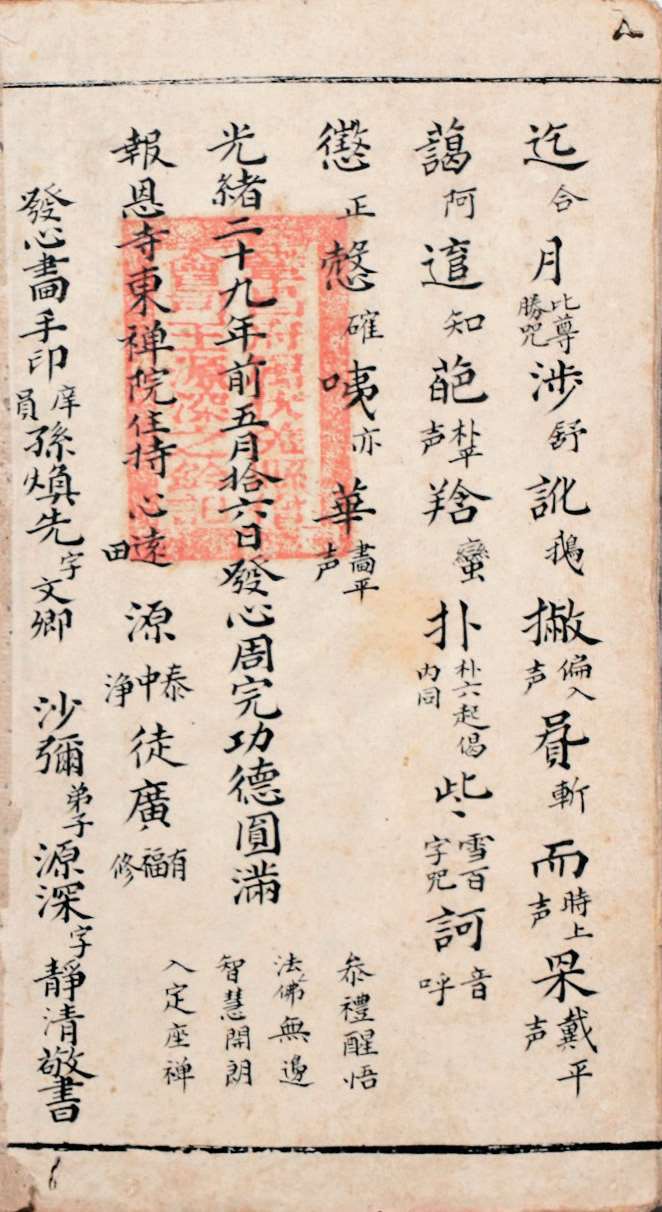 迄合月比尊勝咒涉舒訛鵝撇偏入声㝵斬而時上声杲戴平声
藹阿逭知葩朴平声䍐蠻扑朴六起偈内同些雪百字咒訶音呼
懲正慤確咦亦華畵平声
恭禮醒悟
法佛無邊
智慧開朗
入定座禅
光緒二十九年前五月拾六日發心周完功德圓滿
報恩寺東禅院住持心遠田源泰中浄徒廣有福修
發心畵手印庠員孫煥先字文卿 沙彌弟子源深字靜清敬書